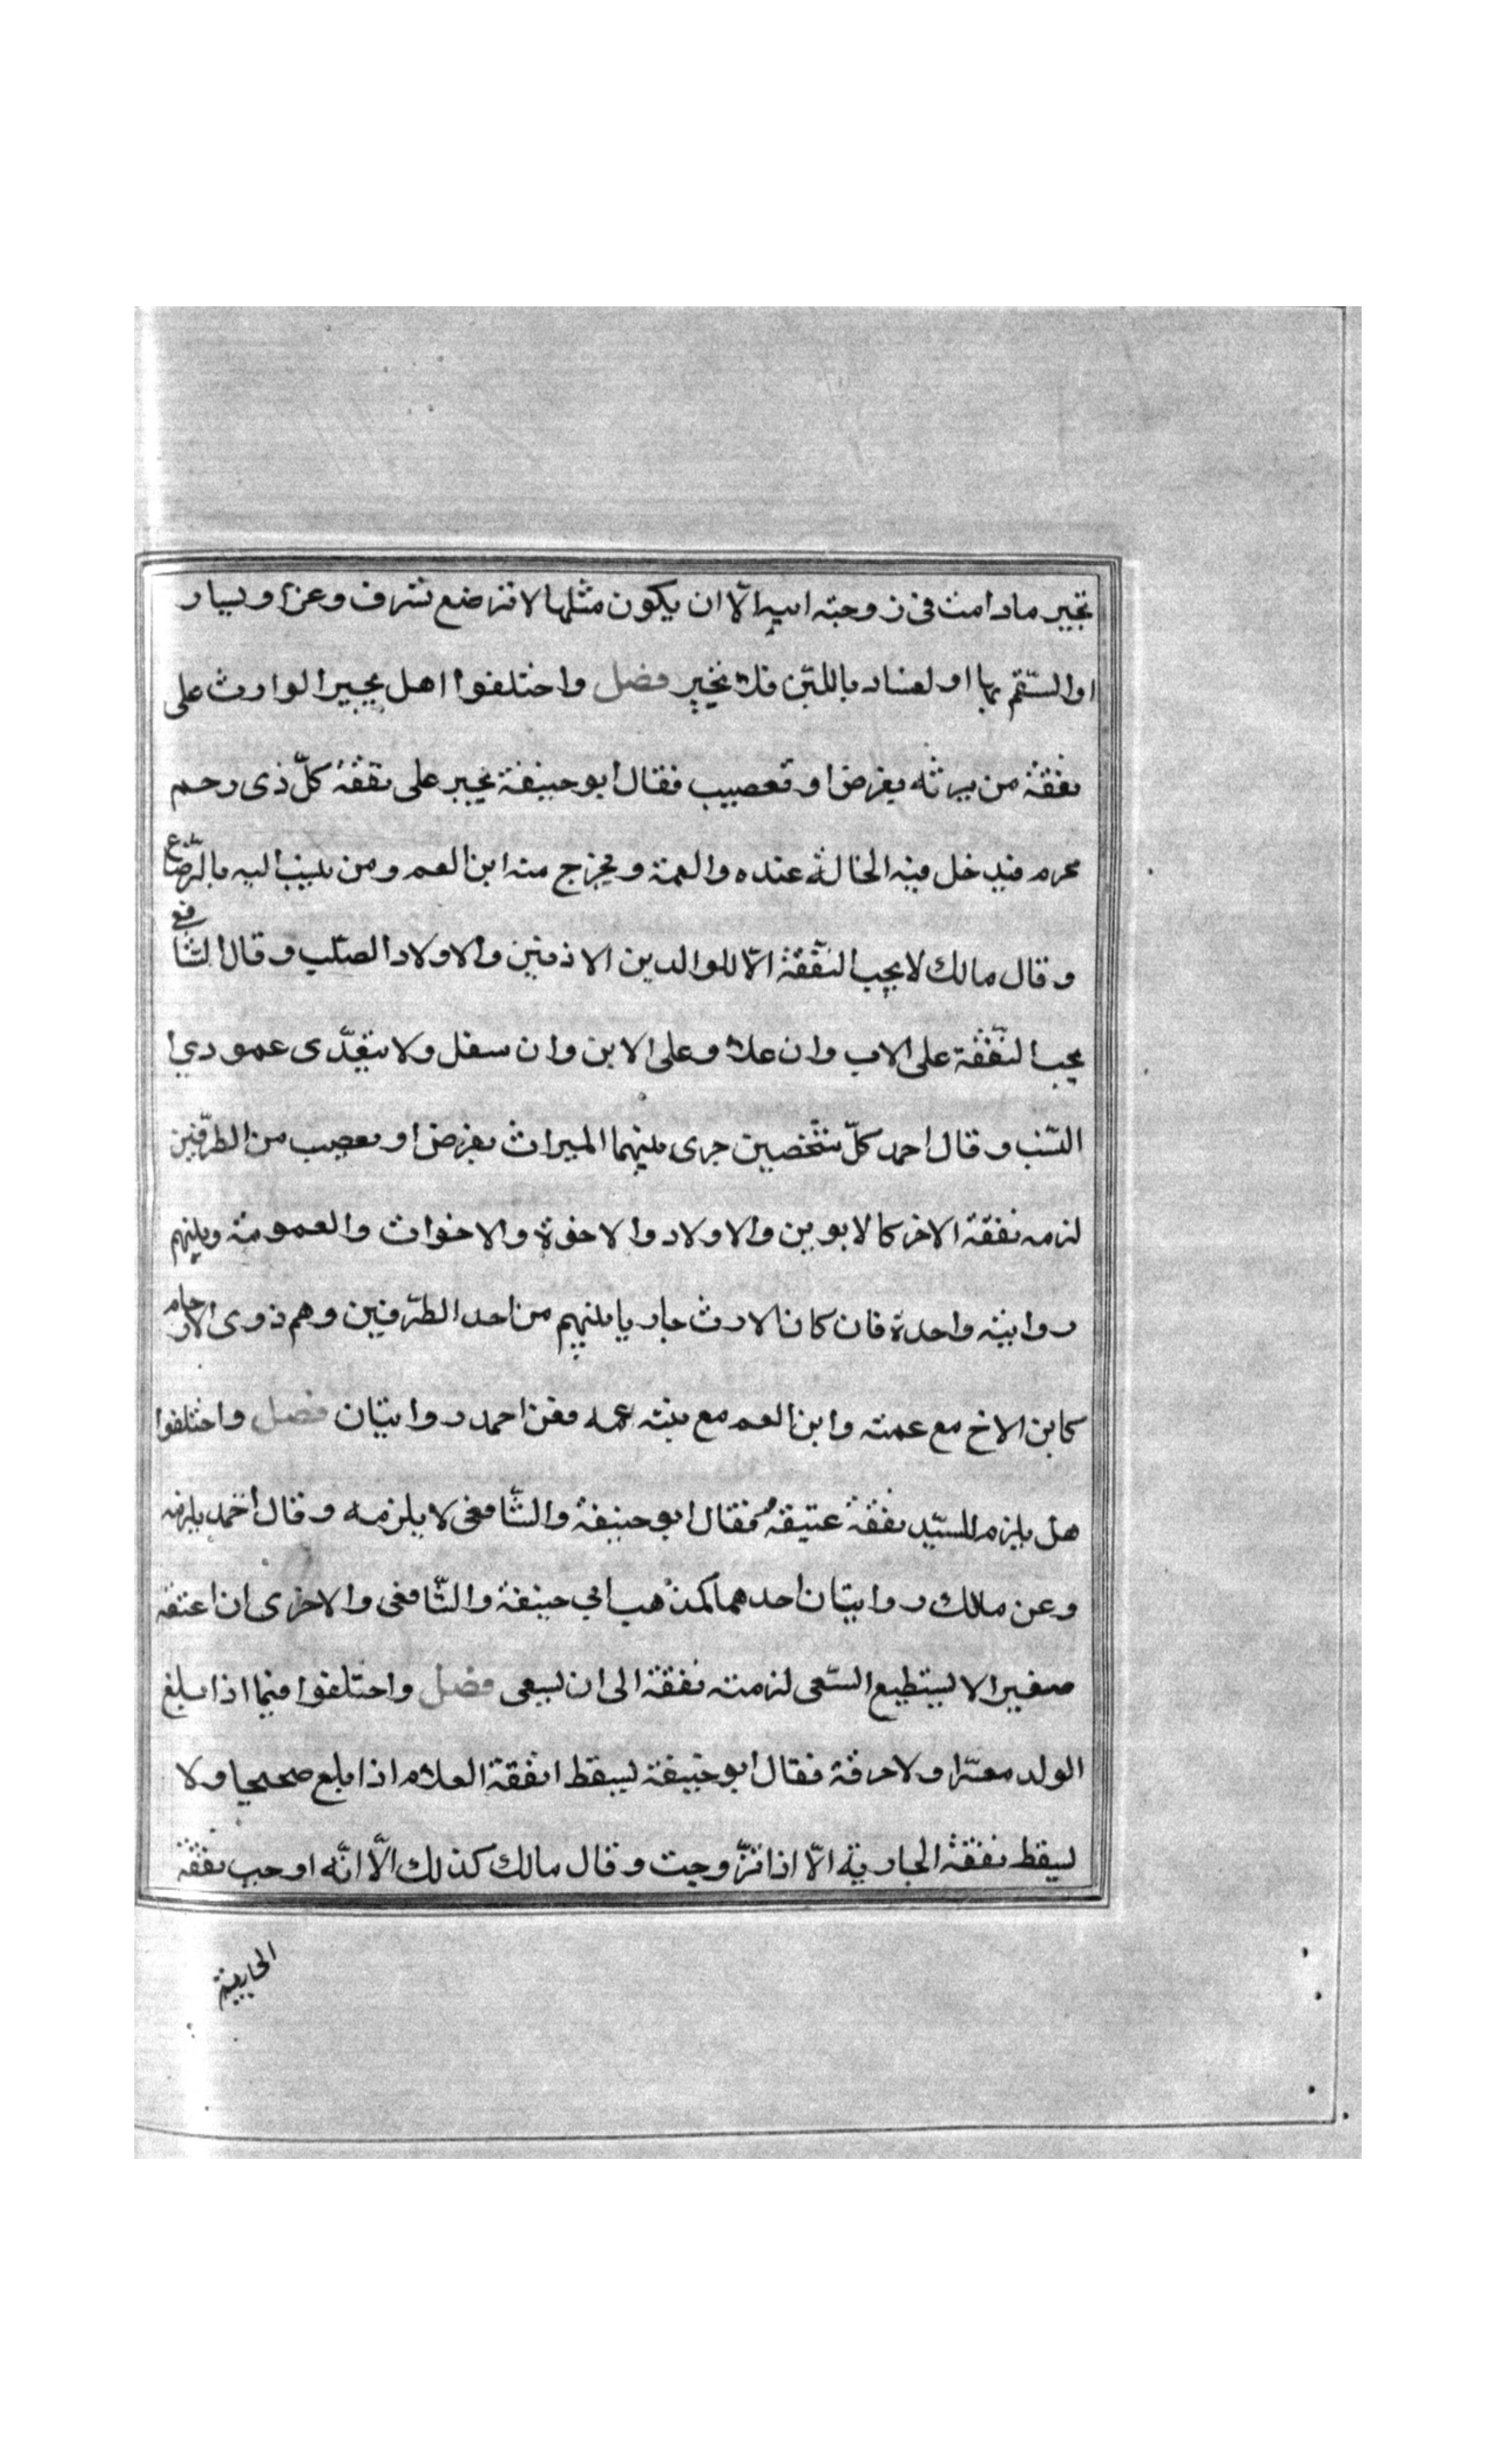 تجبر مادامت فى زوجته ابيه الّا ان يكون مثلها لا ترضع لشرف وعز او يسار
او السّقم بها او لفساد باللبن فلا تجبر فصل واختلفوا اهل يجبر الوارث على
نفقة من يرثه بفرض او تعصيب فقال ابو حنيفة يجبر على نفقة كلّ ذى رحم
محرم فيدخل فيه الخالة عنده والعمة ويخرج منه ابن العم ومن ينسب اليه بالرّضاع
وقال مالك لا يجب النّفقة الّا للوالدين الاذنين والاولاد الصلب وقال الشّافعى
يجب النّفقة على الاب وان علا وعلى الابن وان سفل ولا يتعدّى عمودي
النّسب وقال احمد كلّ شخصين جرى بينهما الميراث بفرض او تعصيب من الطرّفين
لزمه نفقة الاخر كالابوين والاولاد والاخوة والاخوات والعمومة وبينهم
رواية واحدة فان كان الارث جاريا بينهم من احد الطرّفين وهم ذوى الارحام
كابن الاخ مع عمته وابن العم مع بنت عمه فعن احمد روايتان فصل واختلفوا
هل يلزم السّيّد نفقة عتيقه فقال ابو حنيفة والشّافعى لا يلزمه وقال احمد يلزمه
وعن مالك روايتان احدهما كمذهب ابي حنيفة والشّافعى والاخرى ان اعتقه
صغيرا لا يستطيع السّعى لزمته نفقة الى ان يسعى فصل واختلفوا فيما اذا بلغ
الولد معسّرا ولا حرفة فقال ابو حنيفة يسقط انفقة الغلام اذا بلغ صحيحا ولا
يسقط نفقة الجارية الّا اذا تزّوجت وقال مالك كذلك الّا انّه اوجب نفقة
الجارية